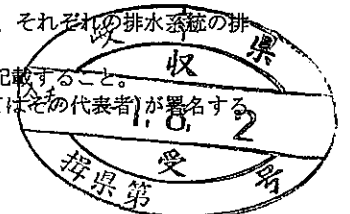 、それぞれの排水系統の排
記載すること。
はその代表者)が署名する
収
県
1.6.2
受
揖県第
号